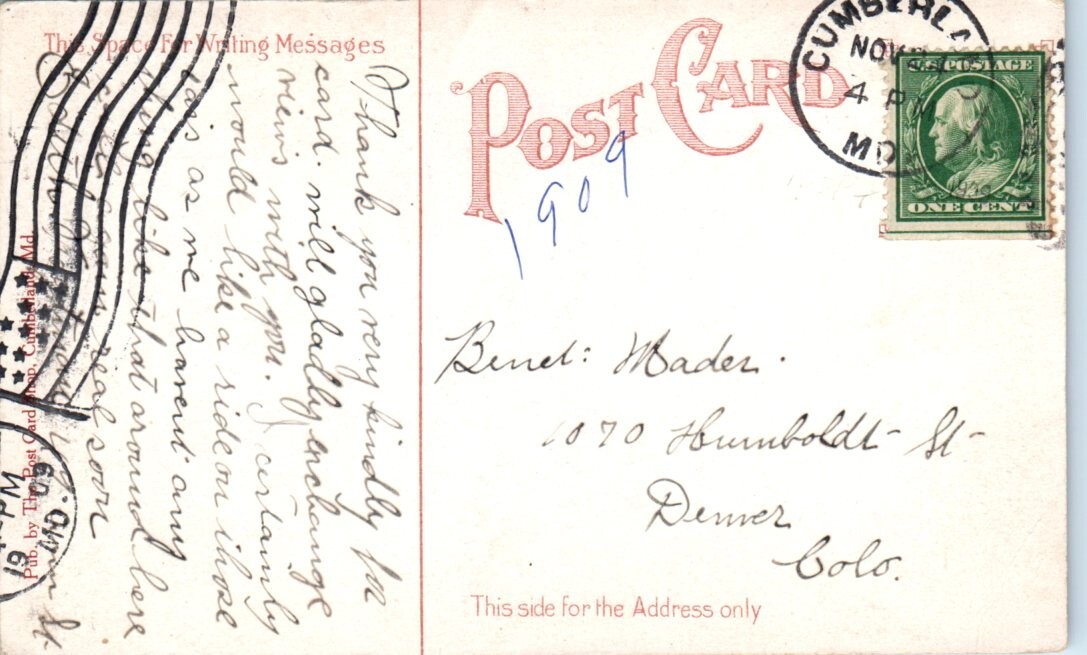 This Space For Writing Messages
POST CARD
CUMBERLAND
NOV
4 PM
MD.
U.S. POSTAGE
ONE CENT
1909
Thank you very kindly for
card. will gladly exchange
views with you. I certainly
would like a ride on those
cars as we havent any
thing like that around here
again real soon
St
Benet: Mader.
1070 Humboldt St
Denver
Colo.
This side for the Address only
Pub. by The Post Card Shop, Cumberland, Md.
PM
19
09
MD.